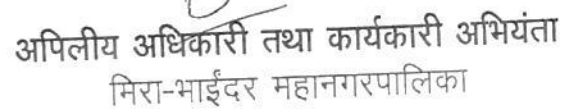 अपिलीय अधिकारी तथा कार्यकारी अभियंता
मिरा-भाईंदर महानगरपालिका